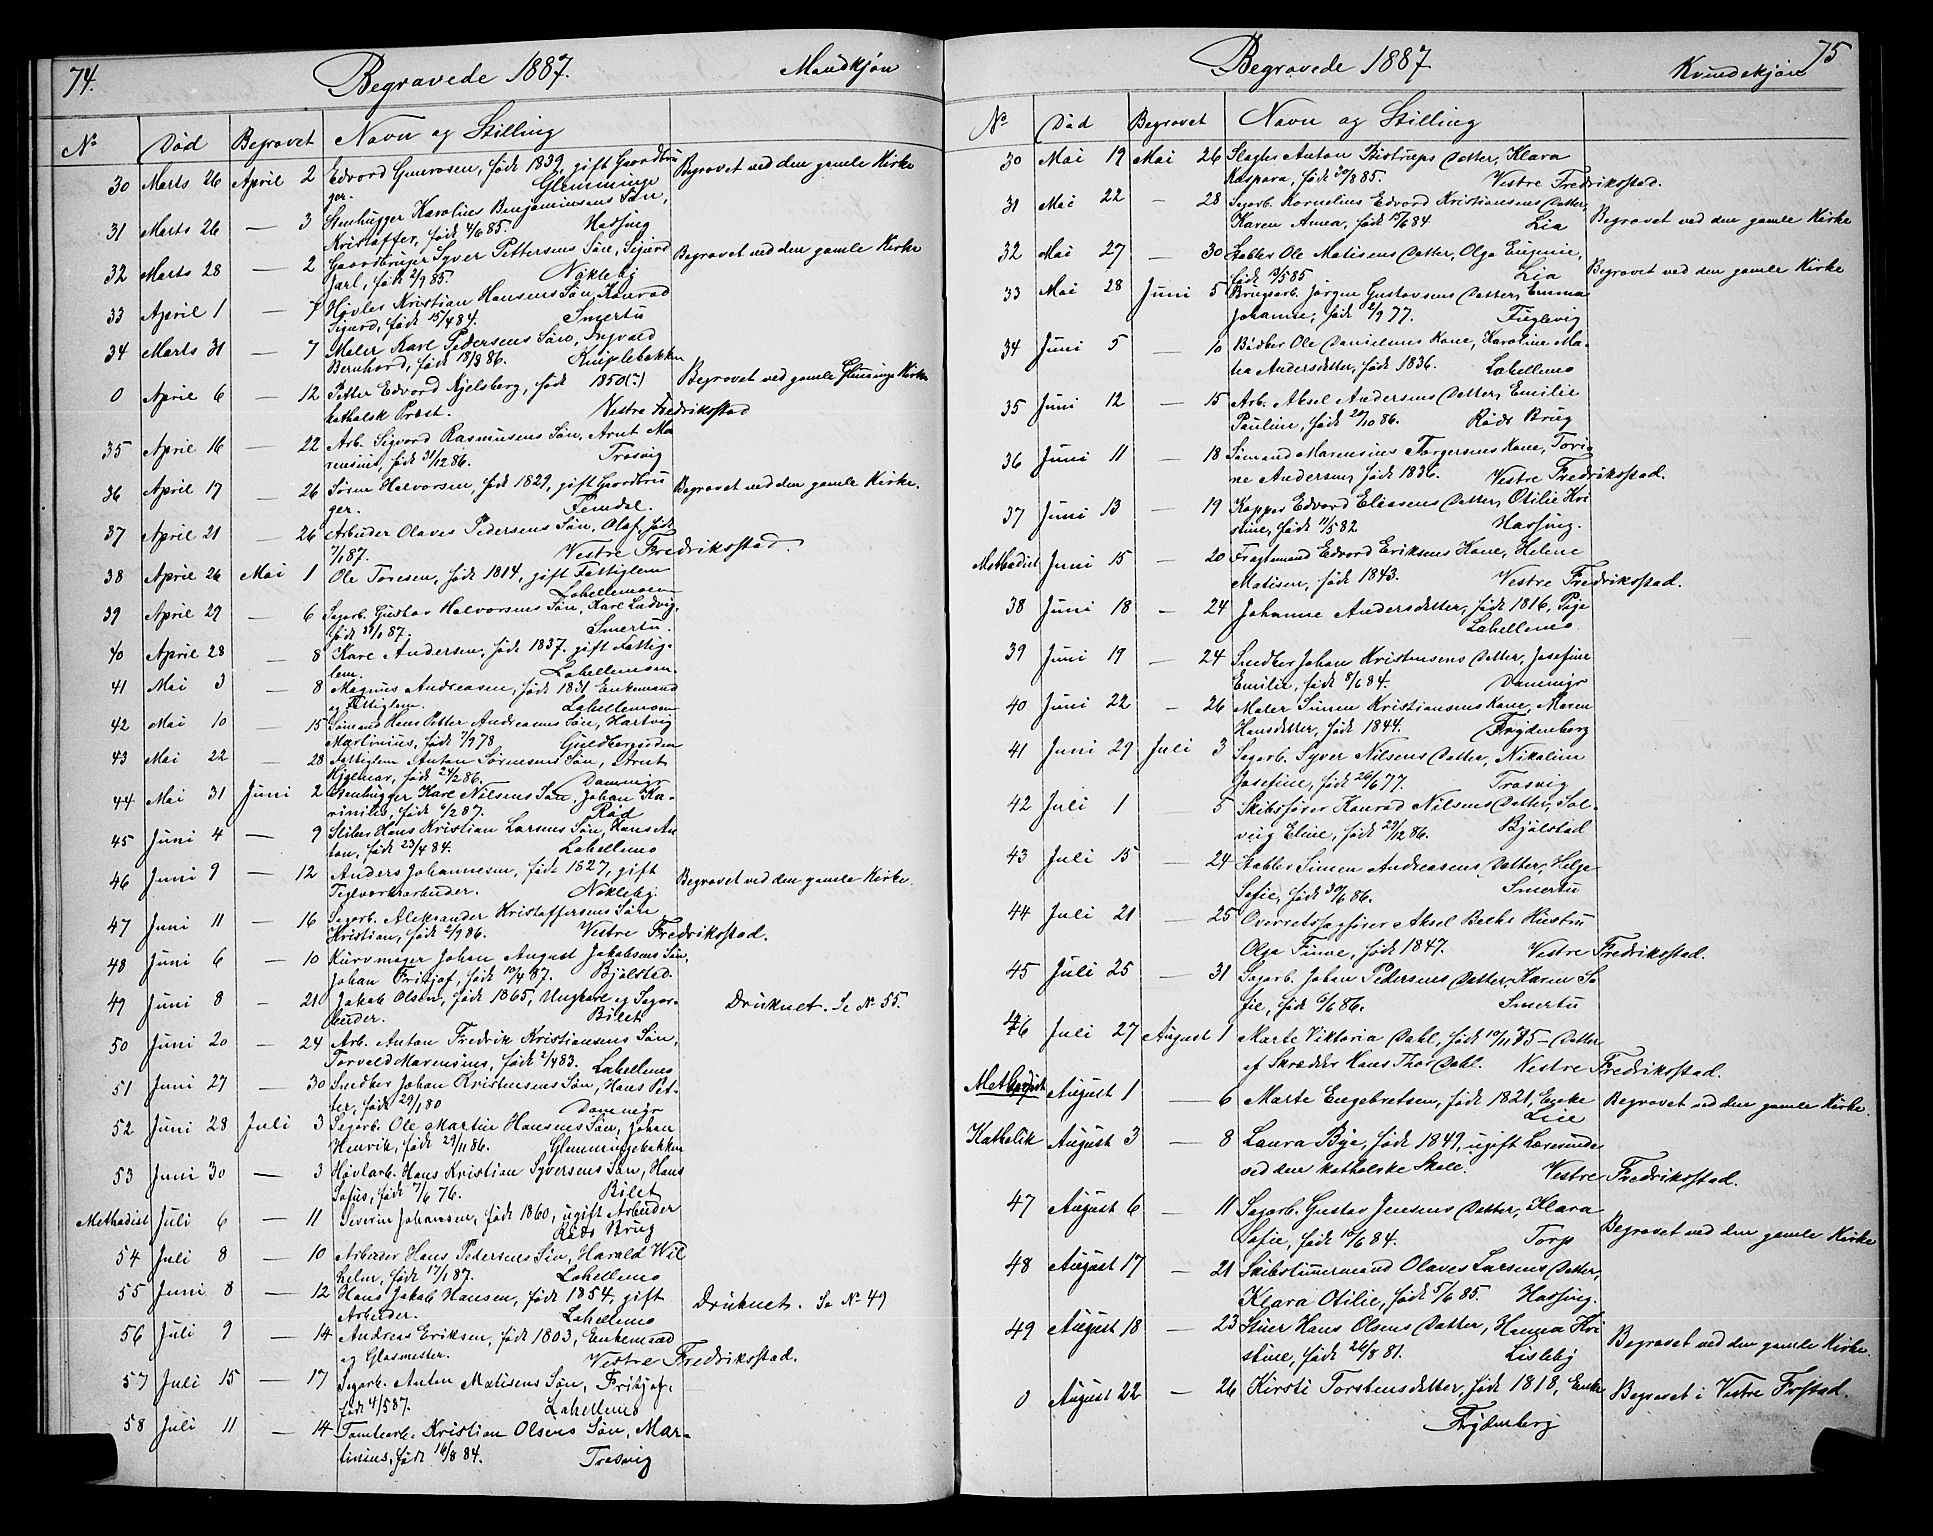 74. Begravede 1887. Mandkjøn
No Død Begravet Navn og Stilling
30 Marts 26 April 2 Edvard Gunersen, født 1839, gift Gaardbru Begravet ved den gamle Kirke
ger. Glemminge
31 Marts 26 — 3 Stenhugger Karolius Benjaminsens Søn,
Kristoffer, født 4/6 85. Hassing
32 Marts 28 — 2 Gaardbruger Syver Pettersens Søn, Sigurd Begravet ved den gamle Kirke
Jarl, født 2/9 85. Nøkleby
33 April 1 — 7 Høvler Kristian Hansens Søn, Konrad
Sigurd, født 15/4 84. Smertu
34 Marts 31 — 7 Maler Karl Pedersens Søn, Ingvald
Bernhard, født 18/8 86. Kniplebakken
0 April 6 — 12 Petter Edvard Kjelsberg, født 1850(?) Begravet ved gamle Glemminge Kirke
katholsk Præst. Vestre Fredriksstad
35 April 16 — 22 Arb. Sigvard Rasmusens Søn, Arnt Ma
rensius, født 31/12 86. Trosvig
36 April 17 — 26 Søren Halvorsen, født 1829, gift Gaardbru Begravet ved den gamle Kirke.
ger. Femdal.
37 April 21 — 26 Arbeider Olaves Pedersens Søn, Olaf, født
7/1 87. Vestre Fredriksstad.
38 April 26 Mai 1 Ole Toresen, født 1814, gift Fattiglem
Lahellemoen
39 April 29 — 6 Sagarb. Gustav Halvorsens Søn, Karl Ludvig,
født 31/1 87. Smertu.
40 April 28 — 8 Karl Andersen, født 1837. gift Fattig-
lem. Lahellemoen.
41 Mai 3 — 8 Magnus Andreasen, født 1831 Enkemand
og Fattiglem. Lahellemoen
42 Mai 10 — 15 Sømand Hans Petter Andreasens Søn, Hartvig
Martinius, født 7/9 78 Guldbergsiden
43 Mai 22 — 28 Fattiglem Anton Sørensens Søn, Arnt
Hjalmar, født 24/2 86. Dammyr
44 Mai 31 Juni 2 Stenhugger Karl Nilsens Søn, Johan Ka-
rinius, født 6/2 87. Rød
45 Juni 4 — 9 Sliber Hans Kristian Larsens Søn, Hans An
ton, født 23/4 84. Lahellemo
46 Juni 9 — 12 Anders Johannesen, født 1827, gift Begravet ved den gamle Kirke.
Teglværksarbeider. Nøkleby.
47 Juni 11 — 16 Sagarb. Aleksander Kristoffersens Søn
Kristian, født 2/9 86. Vestre Fredriksstad.
48 Juni 6 — 10 Kurvmager Johan August Jakobsens Søn,
Johan Fritjof, født 19/4 87. Bjølstad.
49 Juni 8 — 21 Jakob Olsen, født 1865, Ungkarl og Sagar- Druknet. Se No 55.
beider. Bilet
50 Juni 20 — 24 Arb. Anton Fredrik Kristiansens Søn,
Torvald Marensius, født 2/4 83. Lahellemo
51 Juni 27 — 30 Snedker Johan Kristensens Søn, Hans Pet-
ter, født 29/1 80 Dammyr
52 Juni 28 Juli 3 Sagarb. Ole Martin Hansens Søn, Johan
Henrik, født 29/11 86. Glemmingebakken
53 Juni 30 — 3 Høvlarb. Hans Kristian Syversens Søn, Hans
Sofus, født 7/6 76. Bilet
Methodist Juli 6 — 11 Severin Johansen, født 1860, ugift Arbeider
Røds Brug
54 Juli 8 — 10 Arbeider Hans Pedersens Søn, Harald Wil
helm, født 17/1 87. Lahellemo
55 Juni 8 — 12 Hans Jakob Hansen, født 1854, gift Druknet. Se No 49
Arbeider. Lahellemo
56 Juli 9 — 14 Andreas Eriksen, født 1803, Enkemand
og Glasmester. Vestre Fredriksstad.
57 Juli 15 — 17 Sagarb. Anton Matisens Søn, Fritjof,
født 4/5 87. Lahellemo
58 Juli 11 — 14 Tomtearb. Kristian Olsens Søn, Mar-
tinius, født 16/8 84. Trosvig
Begravede 1887 Kvindekjøn 75
No Død Begravet Navn og Stilling
30 Mai 19 Mai 26 Slagter Anton Bistrups Datter, Klara
Kaspara, født 30/8 85. Vestre Fredriksstad.
31 Mai 22 — 28 Sagarb. Kornelius Edvard Kristiansens Datter, Begravet ved den gamle Kirke
Karen Anna, født 15/6 84 Lia
32 Mai 27 — 30 Stabler Ole Matisens Datter, Olga Eugenie, Begravet ved den gamle Kirke
født 13/5 85 Lia
33 Mai 28 Juni 5 Brugsarb. Jørgen Gustavsens Datter, Emma
Johanne, født 2/9 77. Fuglevig
34 Juni 5 — 10 Bødker Ole Danielsens Kone, Karoline Ma-
tea Andersdatter, født 1836. Lahellemo
35 Juni 12 — 15 Arb. Aksel Andersens Datter, Emilie
Pauline, født 27/10 86. Røds Brug
36 Juni 11 — 18 Sømand Marensius Torgersens Kone, Tori-
ne Andersen, født 1836. Vestre Fredriksstad.
37 Juni 13 — 19 Kapper Edvard Eliasens Datter, Otilie Kri
stine, født 11/5 82 Hassing.
Methodist Juni 15 — 20 Fragtmand Edvard Eriksens Kone, Helene
Matisen, født 1843. Vestre Fredriksstad.
38 Juni 18 — 24 Johanne Andersdatter, født 1816, Pige
Lahellemo
39 Juni 19 — 24 Snedker Johan Kristensens Datter, Josefine
Emilie, født 8/6 84. Dammyr
40 Juni 22 — 26 Maler Simen Kristiansens Kone, Maren
Hansdatter, født 1844. Frydenberg
41 Juni 29 Juli 3 Sagarb. Syver Nilsens Datter, Nikoline
Josefine, født 26/6 77. Trosvig
42 Juli 1 — 5 Skibsfører Konrad Nilsens Datter, Sol-
veig Eline, født 29/12 86. Bjølstad
43 Juli 15 — 24 Stabler Simen Andreasens Datter, Helga
Sofie, født 30/6 86. Smertu
44 Juli 21 — 25 Overretssagfører Aksel Beths Hustru
Olga Finne, født 1847. Vestre Fredriksstad.
45 Juli 25 — 31 Sagarb. Johan Pedersens Datter, Karen So
fie, født 6/6 86. Smertu
46 Juli 27 August 1 Marte Viktoria Dahl, født 19/11 75 — Datter
af Skrædder Hans Thor Dahl. Vestre Fredriksstad.
Methodist August 1 — 6 Marte Engebretsen, født 1821, Enke Begravet ved den gamle Kirke.
Lie
Katholik August 3 — 8 Laura Bye, født 1849, ugift Lærerinde
ved den katholske Skole. Vestre Fredriksstad.
47 August 6 — 11 Sagarb. Gustav Jensens Datter, Klara Begravet ved den gamle Kirke
Sofie, født 16/6 84. Torp
48 August 17 — 21 Skibstømmermand Olaves Larsens Datter,
Klara Otilie, født 5/6 85. Hassing.
49 August 18 — 23 Stuer Hans Olsens Datter, Hanna Kri Begravet ved den gamle Kirke.
stine, født 26/8 81. Lisleby
0 August 22 — 26 Kirsti Torstensdatter, født 1818, Enke Begravet i Vestre Frstad.
Frydenberg